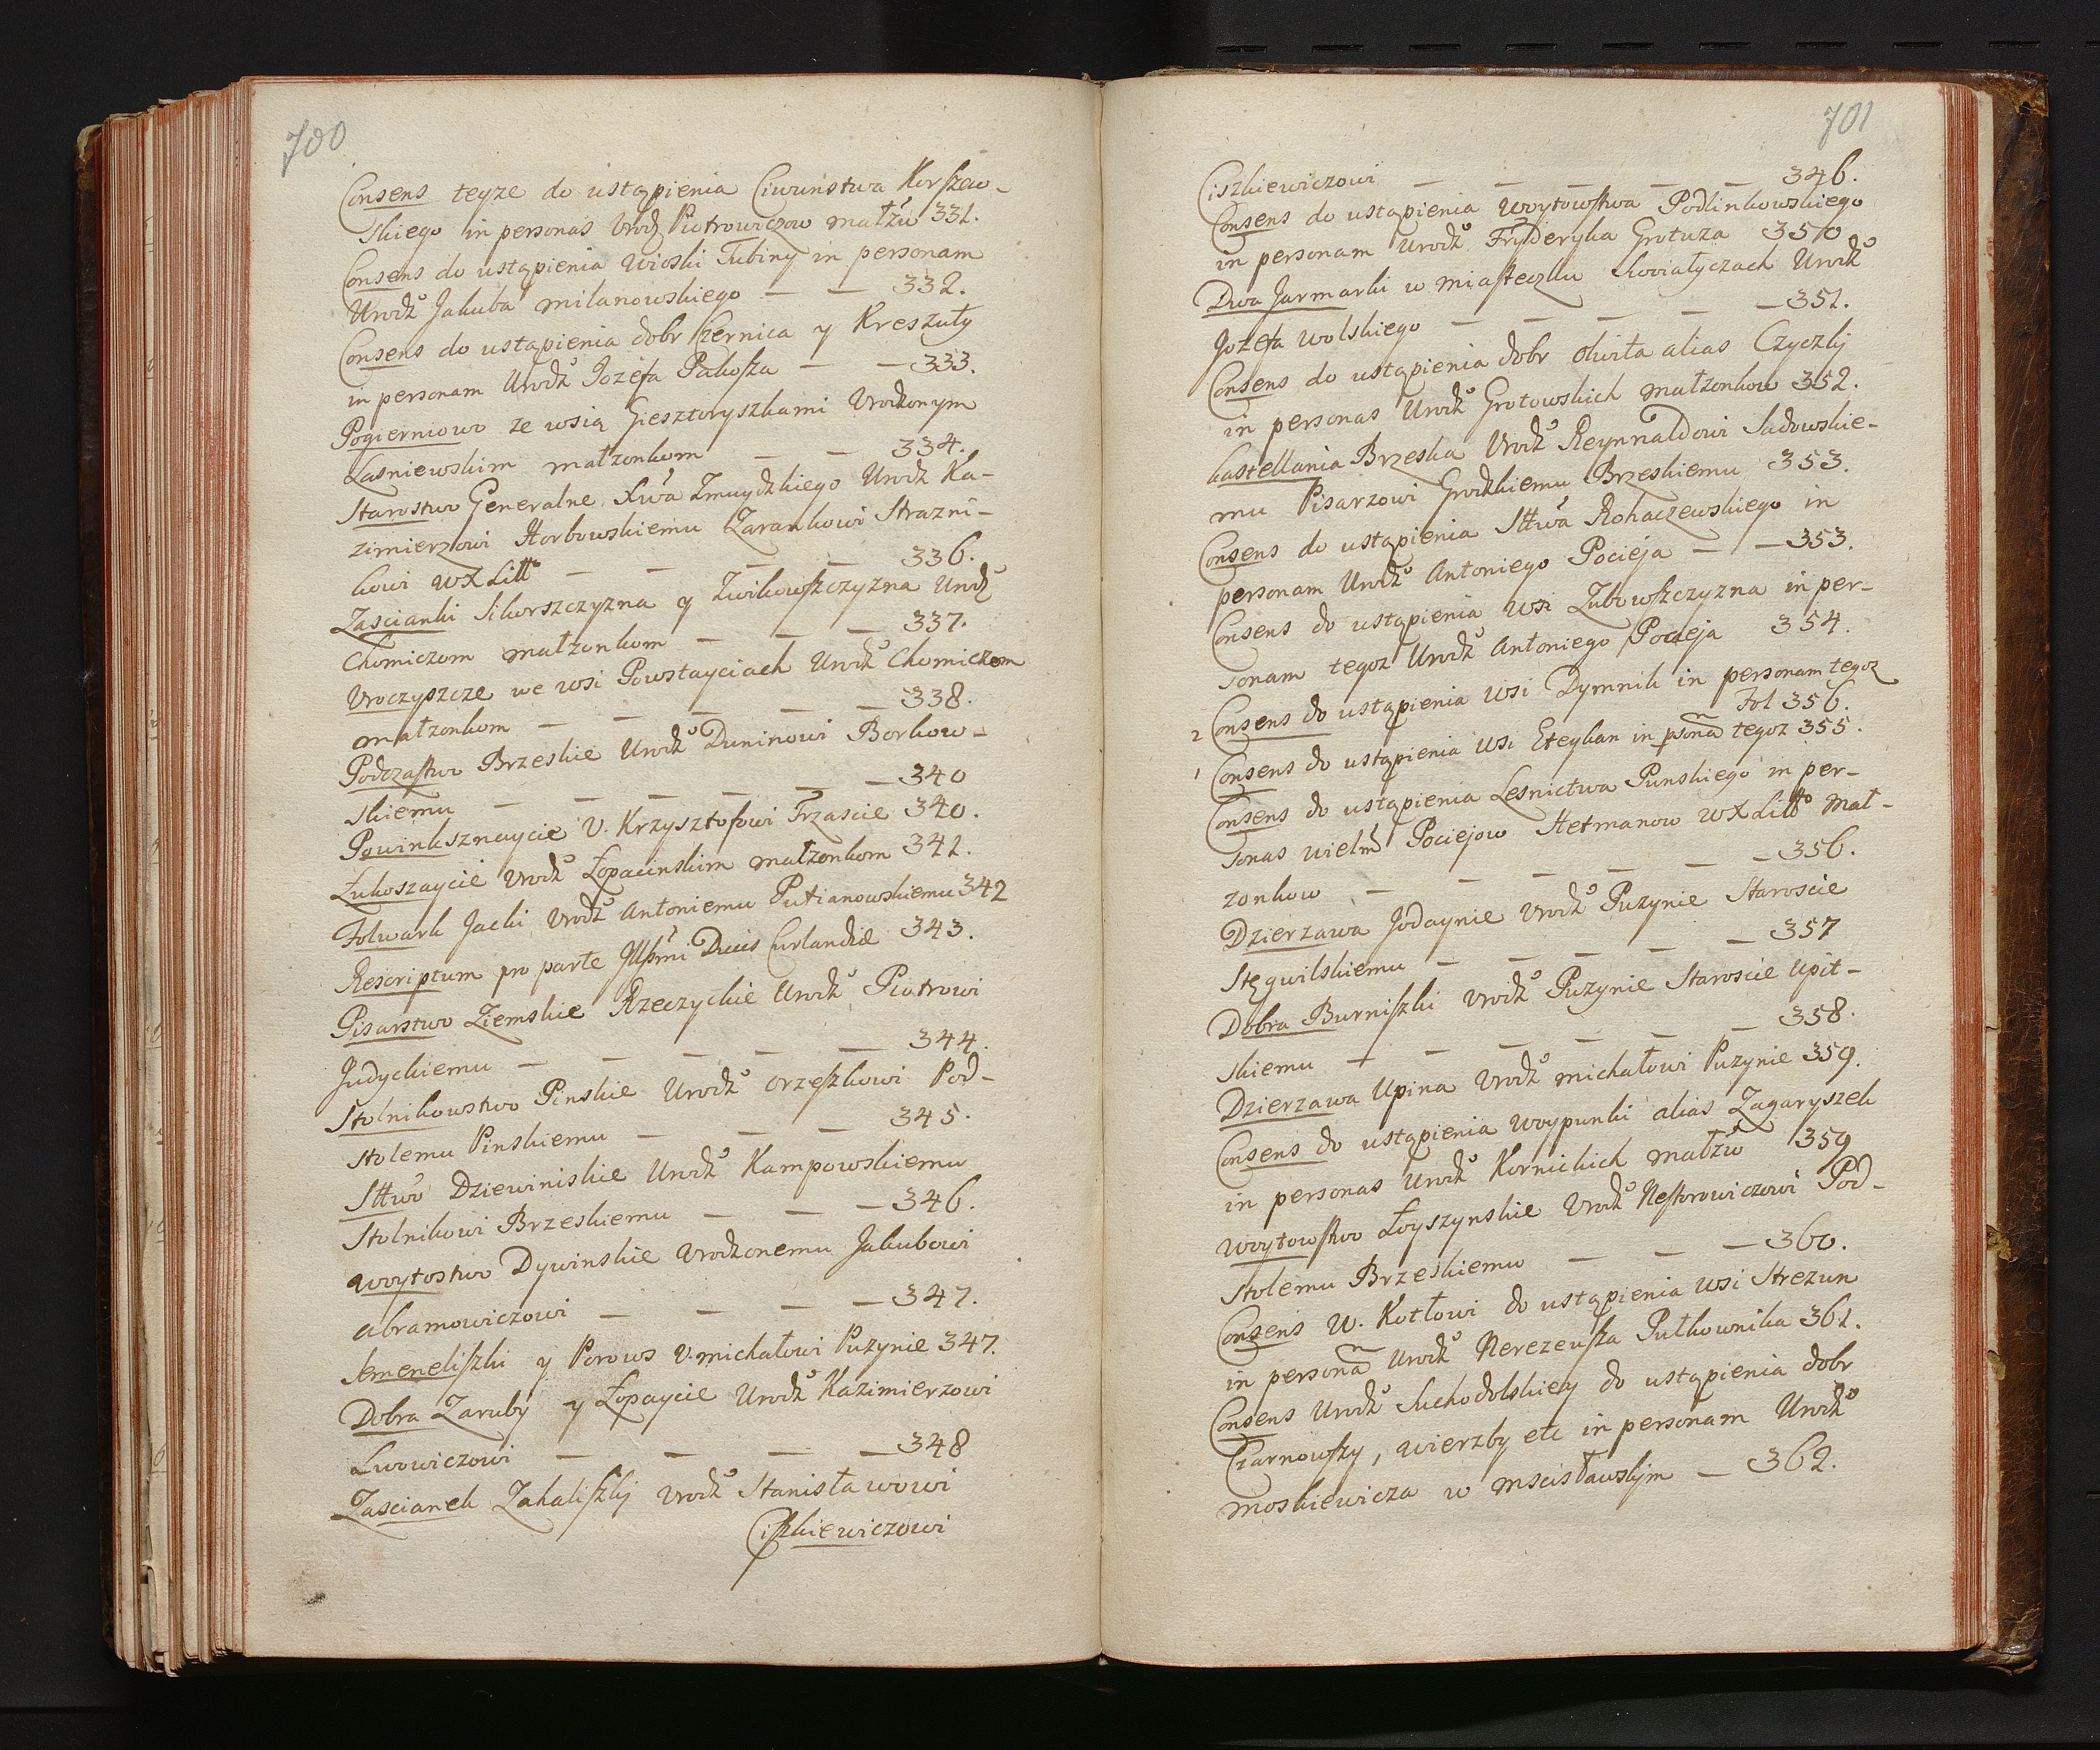 700
Consens teyze do ustąpienia Ciwunstwa Korszew-
skiego in personas Urodz Piotrowiczow małzw 331.
Consens do ustąpienia wioski Tubiny in personam
Urodzo Jakuba Milanowskiego — — 332.
Consens do ustąpienia dobr Czernica y Kreszuty
in personam Urodzo Jozefa Pakosza — — 333.
Pogierniowo ze wsią Giesztowyszkami Urodzonym
Łasniewskim małzonkom — — 334.
Starostwo Generalne Xwa Zmuydzkiego Urodz Ka-
zimierzowi Horbowskiemu Zarankowi Strazni-
kowi WXLitto — — — — 336.
Zascianki Sikorszczyzna y Zwikowszczyzna Urodzo
Chomiczom małzonkom — — — 337.
Uroczyszcze we wsi Powstayciach Urodzo Chomiczom
małzonkom — — — — — 338.
Podczastwo Brzeskie Urodzo Duninowi Borkow-
skiemu — — — — — — 340
Powinksznaycie U. Krzysztofowi Trzascie 340.
Łukoszaycie Urodzo Łopacinskim małzonkom 341.
Folwark Jacki Urodzo Antoniemu Putianowskiemu 342
Rescriptum pro parte Jllsmi Ducis Curlandiæ 343.
Pisarstwo Ziemskie Rzeczyckie Urodzo Piotrowi
Judyckiemu — — — — — 344.
Stolnikowstwo Pinskie Urodzo Orzeszkowi Pod-
stolemu Pinskiemu — — — 345.
Sttwo Dziewiniskie Urodzo Kampowskiemu
Stolnikowi Brzeskiemu — — — 346.
Woytostwo Dywinskie Urodzonemu Jakubowi
Abramowiczowi — — — — 347.
Jemeneliszki y Porows U. Michałowi Puzynie 347.
Dobra Zaruby y Łopaycie Urodzo Kazimierzowi
Lwowiczowi — — — — 348
Zascianek Zakaliszkij Urodzo Stanisławowi
Ciszkiewiczowi
701
Ciszkiewiczowi — — — — — 346.
Consens do ustąpienia Woytowstwa Podlinkowskiego
in personam Urodzo Fryderyka Grotuza 350
Dwa Jarmarki w miasteczku Kwiatyczach Urodzo
Jozefa Wolskiego — — — — — 351.
Consens do ustąpienia dobr Olwita alias Czyczkij
in personas Urodzo Grotowskich małzonkow 352.
Kastellania Brzeska Urodzo Reynnaldowi Sadowskie-
mu Pisarzowi Grodzkiemu Brzeskiemu 353.
Consens do ustąpienia Sttwa Rohaczewskiego in
personam Urodzo Antoniego Pocieja — — 353.
Consens do ustąpienia wsi Zubowszczyzna in per-
sonam tegoz Urodzo Antoniego Pocieja 354.
2 Consens do ustąpienia wsi Dymnik in personam tegoz
Fol 356.
1 Consens do ustąpienia wsi Eteykan in psona tegoz 355.
Consens do ustąpienia Lesnictwa Punskiego in per-
sonas Wielm Pociejow Hetmanow WXLitto Mał-
zonkow — — — — — — 356.
Dzierzawa Jodaynie Urodzo Puzynie Staroscie
Stęgwilskiemu — — — — — 357
Dobra Burniszki Urodzo Puzynie Staroscie Upit-
skiemu — — — — — — 358.
Dzierzawa Upina Urodzo Michałowi Puzynie 359.
Consens do ustąpienia Woypunki alias Zagaryszek
in personas Urodzo Kornickich małzw 359
Woytowstwo Łoyszynskie Urodzo Nestorowiczowi Pod-
stolemu Brzeskiemu — — — 360.
Consens W. Kotłowi do ustąpienia wsi Strezun
in persona Urodzo Nerezeusza Pułkownika 361.
Consens Urodzo Suchodolskiey do ustąpienia dobr
Czarnowszy, Wierzby etc in personam Urodzo
Moskiewicza w Mscisławskjm — 362.